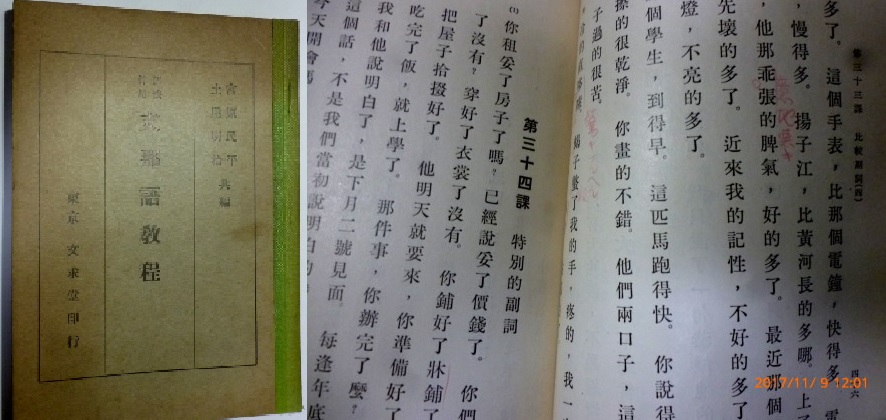 土屋明治 共編
語教程
東京 文求堂印行
第三十三課 比較副詞(四) 四六
多了。這個手表，比那個電鐘，快得多。電
，慢得多。揚子江，比黃河長的多哪。上了
，他那乖張的脾氣，好的多了。最近那個
先壞的多了。近來我的記性，不好的多了
燈，不亮的多了。
個學生，到得早。這匹馬跑得快。你說得
擦的很乾淨。你畫的不錯。他們兩口子，這
子過的很苦。
蝎子螫了我的手，疼的，我一
第三十四課 特別的副詞
(1) 你租妥了房子了嗎？已經說妥了價錢了。你們
了沒有？穿好了衣裳了沒有。你鋪好了牀鋪了
把屋子拾掇好了。他明天就要來，你準備好了
吃完了飯，就上學了。那件事，你辦完了麼？
我和他說明白了，是下月二號見面。每逢年底
這個話，不是我們當初說明白的
今天開會嗎
2017/11/ 9 12:01